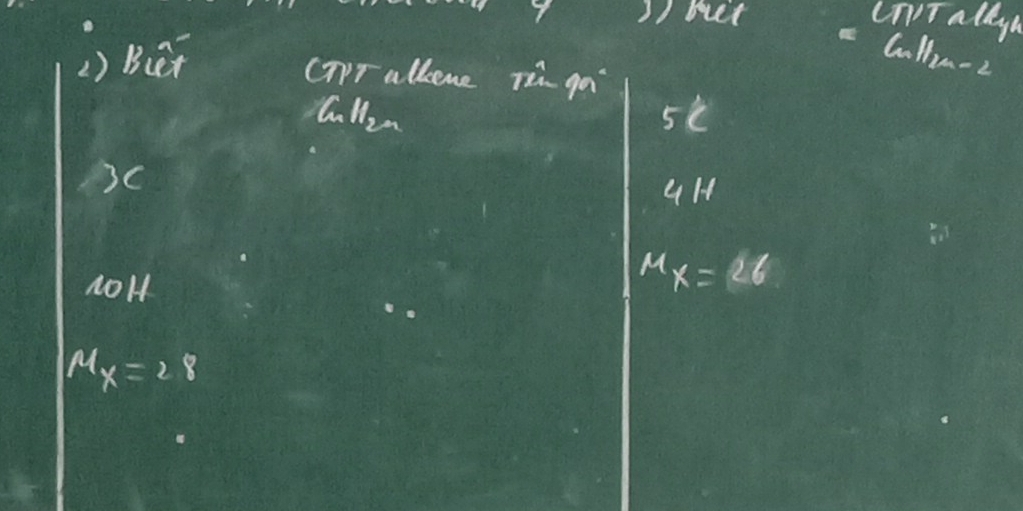 3) Biết CTPT alkyn
CnH2n-2
2) Biết CTPT alkene Tên gọi
CnH2n
3C
10H
Mx = 28
5C
4H
Mx = 26